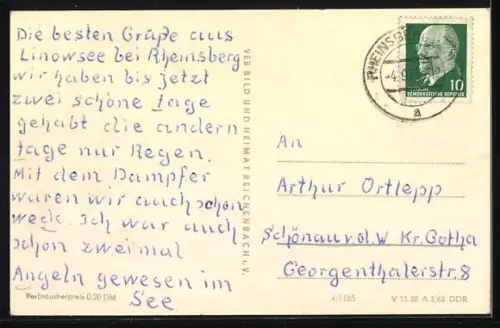 Die besten Grüße aus
Linowsee bei Rheinsberg
wir haben bis jetzt
zwei schöne tage
gehabt die andern
tage nur Regen.
Mit dem Dampfer
waren wir auch schon
weck. Ich war auch
schon zweimal
Angeln gewesen im
See.
Verbraucherpreis 0,20 DM
VEB BILD UND HEIMAT REICHENBACH i. V.
RHEINSBE
-4.
a
DEMOKRATISCHE REPUBLIK
10
An
Arthur Ortlepp
Schönau v.d.W Kr. Gotha
Georgenthalerstr. 8
V 11 28 A 3/63 DDR